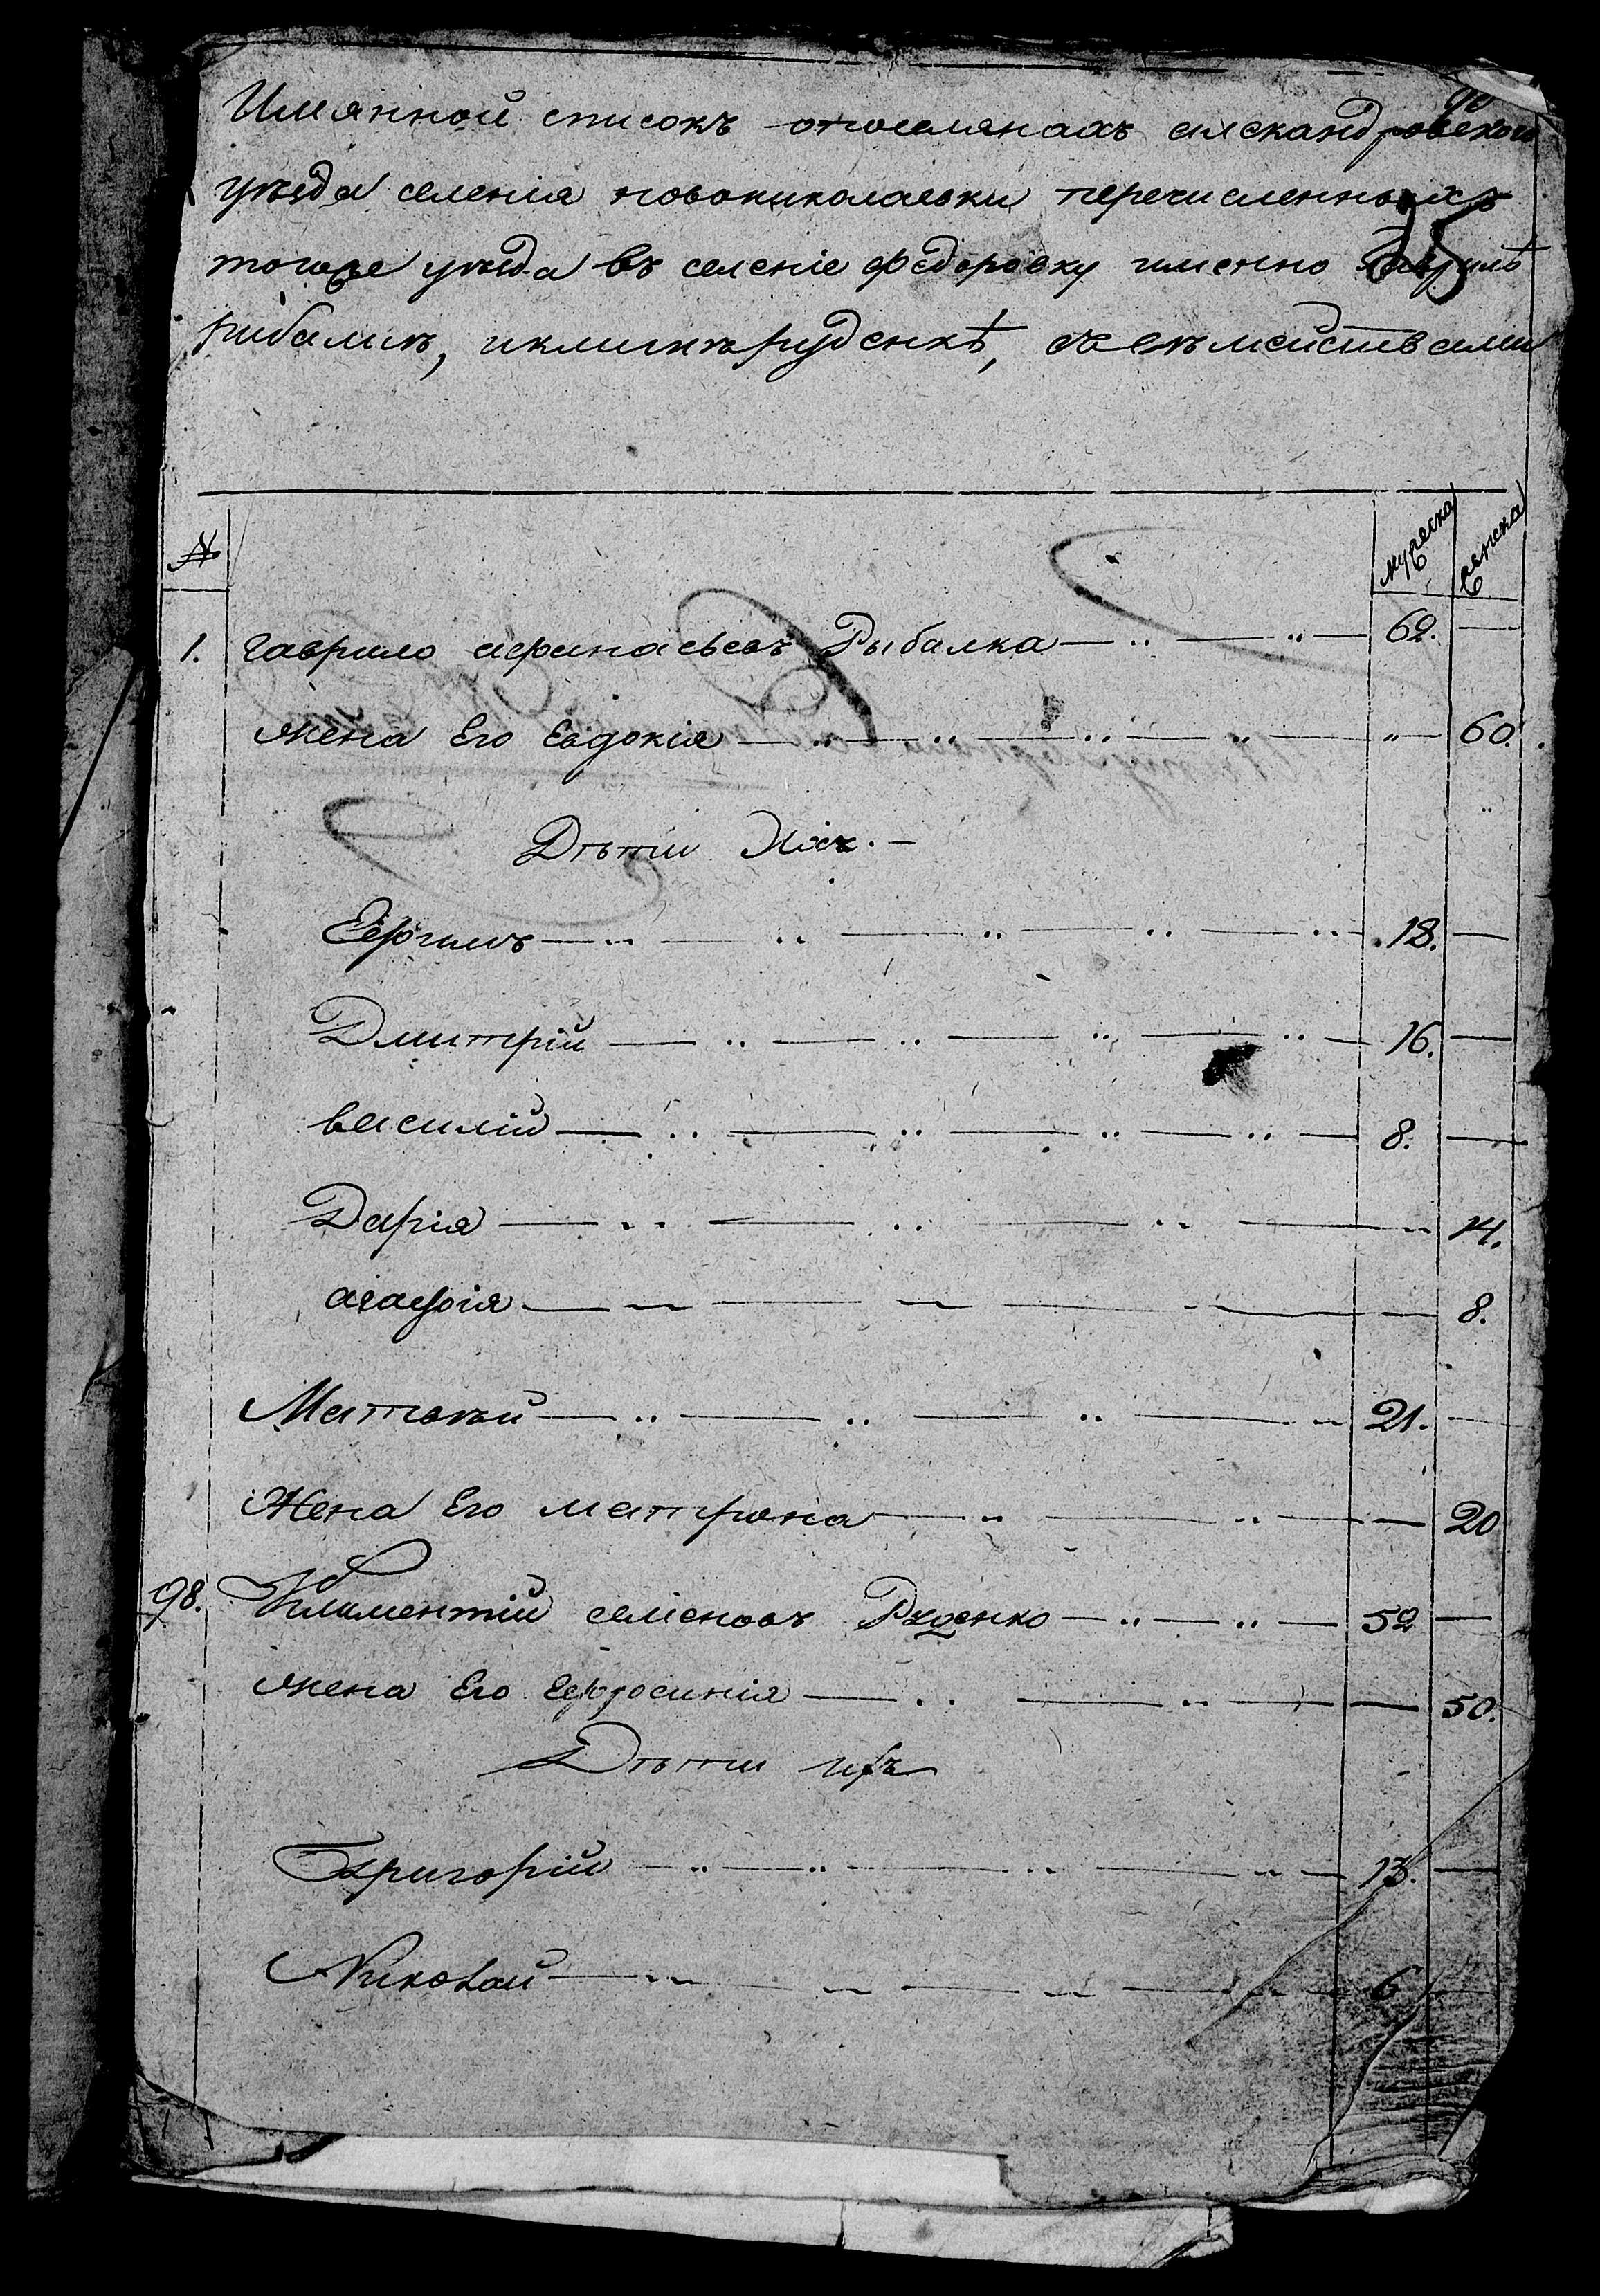 Имянной списокъ опоселянахъ александровского
уѣзда селенія новониколаевки перечисленныхъ
тогоже уѣзда въ селеніе федоровку именно
рибалкѣ, иклимѣ руденкѣ, съ семѣйствами
35
№
мужеска
женска
1. гаврило афанасьевъ Рыбалка — 62. —
жена Его Евдокія — 60.
Дѣти Ихъ. —
Ефимъ — 18. —
Дмитрій — 16. —
василій — 8. —
Дарія — 14.
агафія — 8.
Матвѣй — 21. —
Жена Его матрона — 20
98. Климентій семіоновъ Руденко — 52 —
жена Его Ефросинія — 50.
Дѣти ихъ
Григорій — 13. —
Николай — 6 —